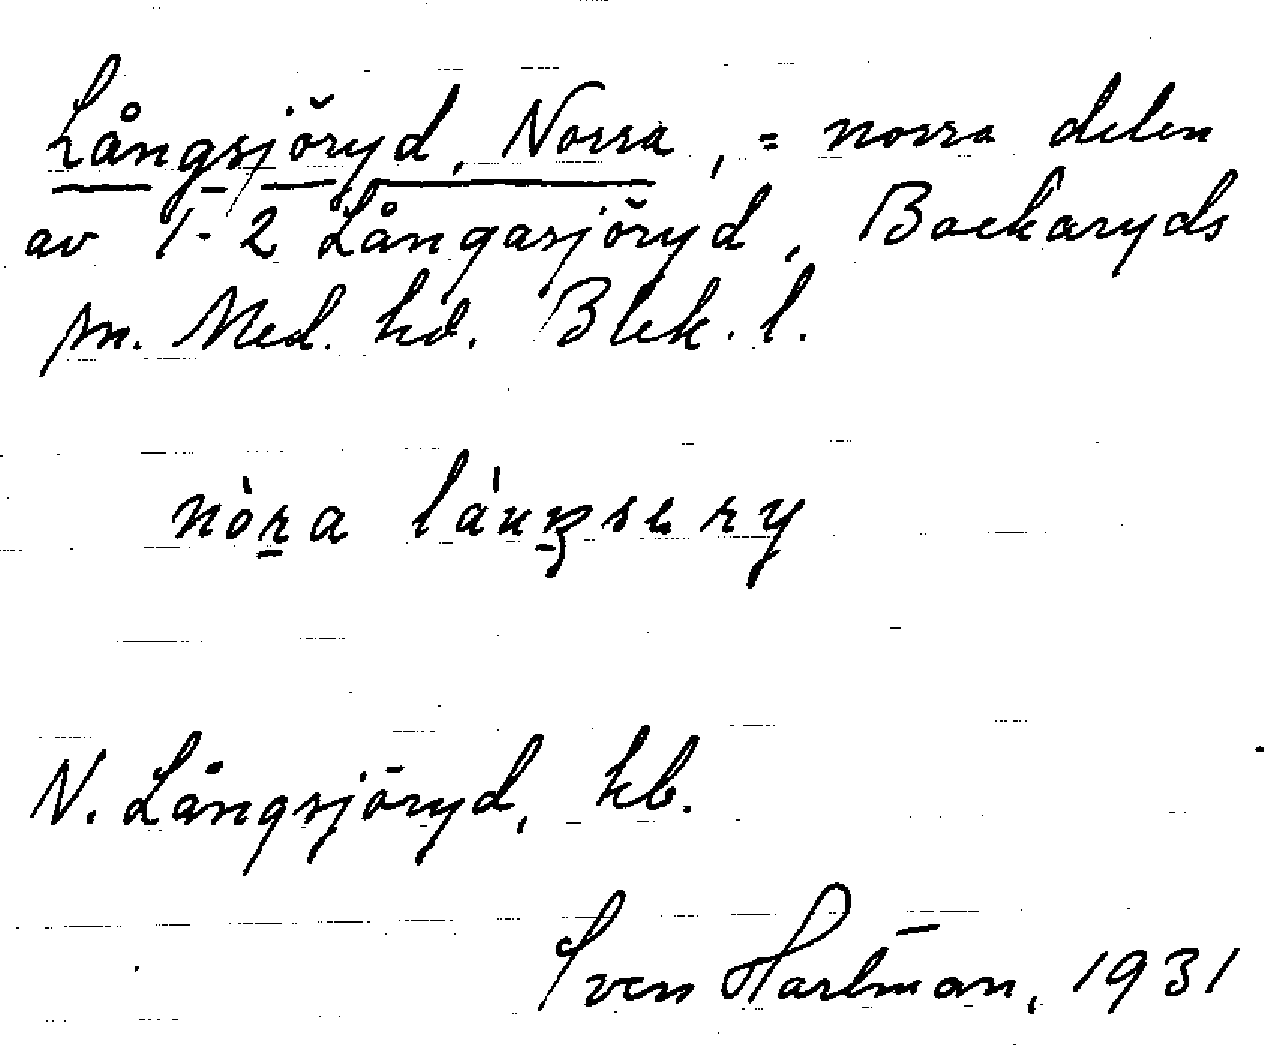 Långsjöryd, Norra, = norra delen
av 1-2 Långasjöryd, Backaryds
sn. Med. hd. Blek. l.
nòra
N. Långsjöryd, kb.
Sven Hartman, 1931